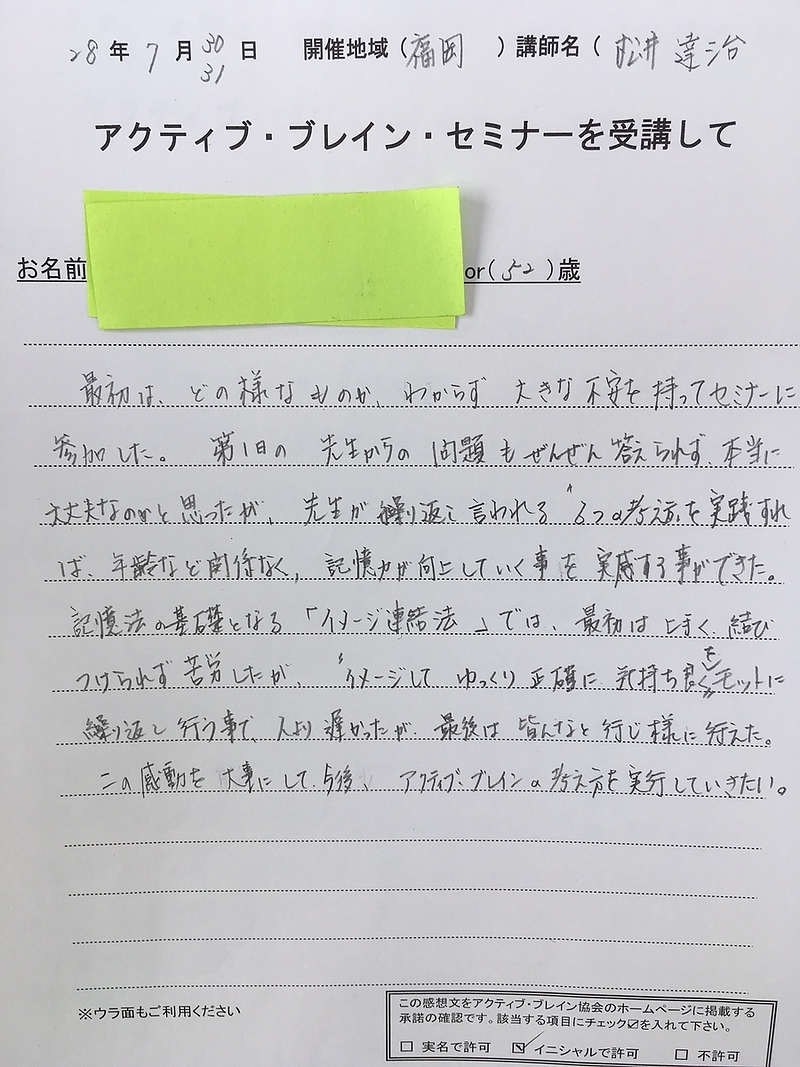 28年7月30日 開催地域(福岡 )講師名(松井 達治
31
アクティブ・ブレイン・セミナーを受講して
お名前 or(52)歳
最初は、どの様なものか、わからず 大きな不安を持ってセミナーに
参加した。 第1日の 先生からの 問題も ぜんぜん 答えられず、本当に
大丈夫なのかと思ったが、先生が繰り返し言われる "6つの考え方"を実践すれ
ば、年齢など関係なく、記憶力が向上していく事を実感する事ができた。
記憶法の基礎となる「イメージ連結法」では、最初は上手く結び
つけられず苦労したが、"イメージして ゆっくり 正確に 気持ち良く"をモットに
繰り返し行う事で、人より遅かったが、最後は 皆んなと 行じ様に行えた。
この感動を 大事にして、今後、アクティブ・ブレインの考え方を実行していきたい。
※ウラ面もご利用ください
この感想文をアクティブ・ブレイン協会のホームページに掲載する
承諾の確認です。該当する項目にチェック☑を入れて下さい。
☐ 実名で許可 ☑ イニシャルで許可 ☐ 不許可